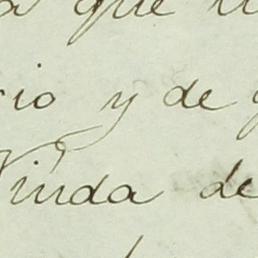 que
rio y de
Viuda de